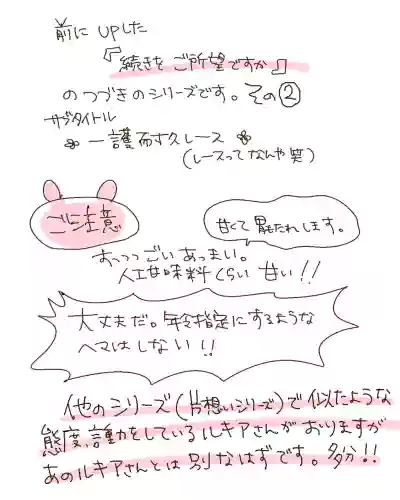 前に UPした
『続きを ご所望ですか』
のつづきのシリーズです。その②
サブタイトル
一護耐久レース
(レースってなんや笑)
ご注意
甘くて胃もたれします。
おっっっごいあっまい。
人工甘味料くらい 甘い!!
大丈夫だ。年令指定にするような
ヘマはしない!!
他のシリーズ(片想いシリーズ)で似たような
態度、言動をしているルキアさんがおりますが
あのルキアさんとは別なはずです。多分!!